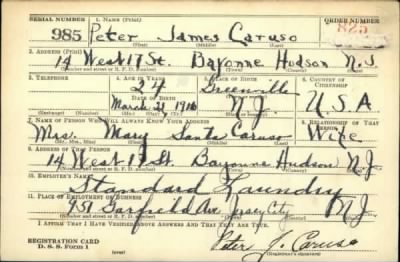 SERIAL NUMBER 1. NAME (Print) ORDER NUMBER
985 Peter James Caruso 825
(First) (Middle) (Last)
2. ADDRESS (Print)
14 West 17 St. Bayonne Hudson N.J.
(Number and street or R. F. D. number) (Town) (County) (State)
3. TELEPHONE 4. AGE IN YEARS 5. PLACE OF BIRTH 6. COUNTRY OF CITIZENSHIP
24 Greenville
DATE OF BIRTH
March 21, 1916 N.J. U.S.A
(Exchange) (Number) (Mo.) (Day) (Yr.) (State or country)
7. NAME OF PERSON WHO WILL ALWAYS KNOW YOUR ADDRESS 8. RELATIONSHIP OF THAT PERSON
Mrs. Mary Santa Caruso Wife
(Mr., Mrs., Miss) (First) (Middle) (Last)
9. ADDRESS OF THAT PERSON
14 West 17 St. Bayonne Hudson N.J.
(Number and street or R. F. D. number) (Town) (County) (State)
10. EMPLOYER'S NAME
Standard Laundry
11. PLACE OF EMPLOYMENT OR BUSINESS
951 Garfield Ave Jersey City N.J.
(Number and street or R. F. D. number) (Town) (County) (State)
I AFFIRM THAT I HAVE VERIFIED ABOVE ANSWERS AND THAT THEY ARE TRUE.
REGISTRATION CARD
D. S. S. Form 1 (over) Peter J. Caruso
(Registrant's signature)